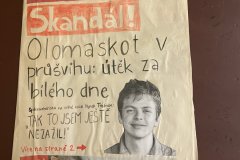 Skandál!
Olomaskot v
průšvihu: útěk za
bílého dne
"TAK TO JSEM JEŠTĚ
NEZAŽIL!"
Více na straně 2 →